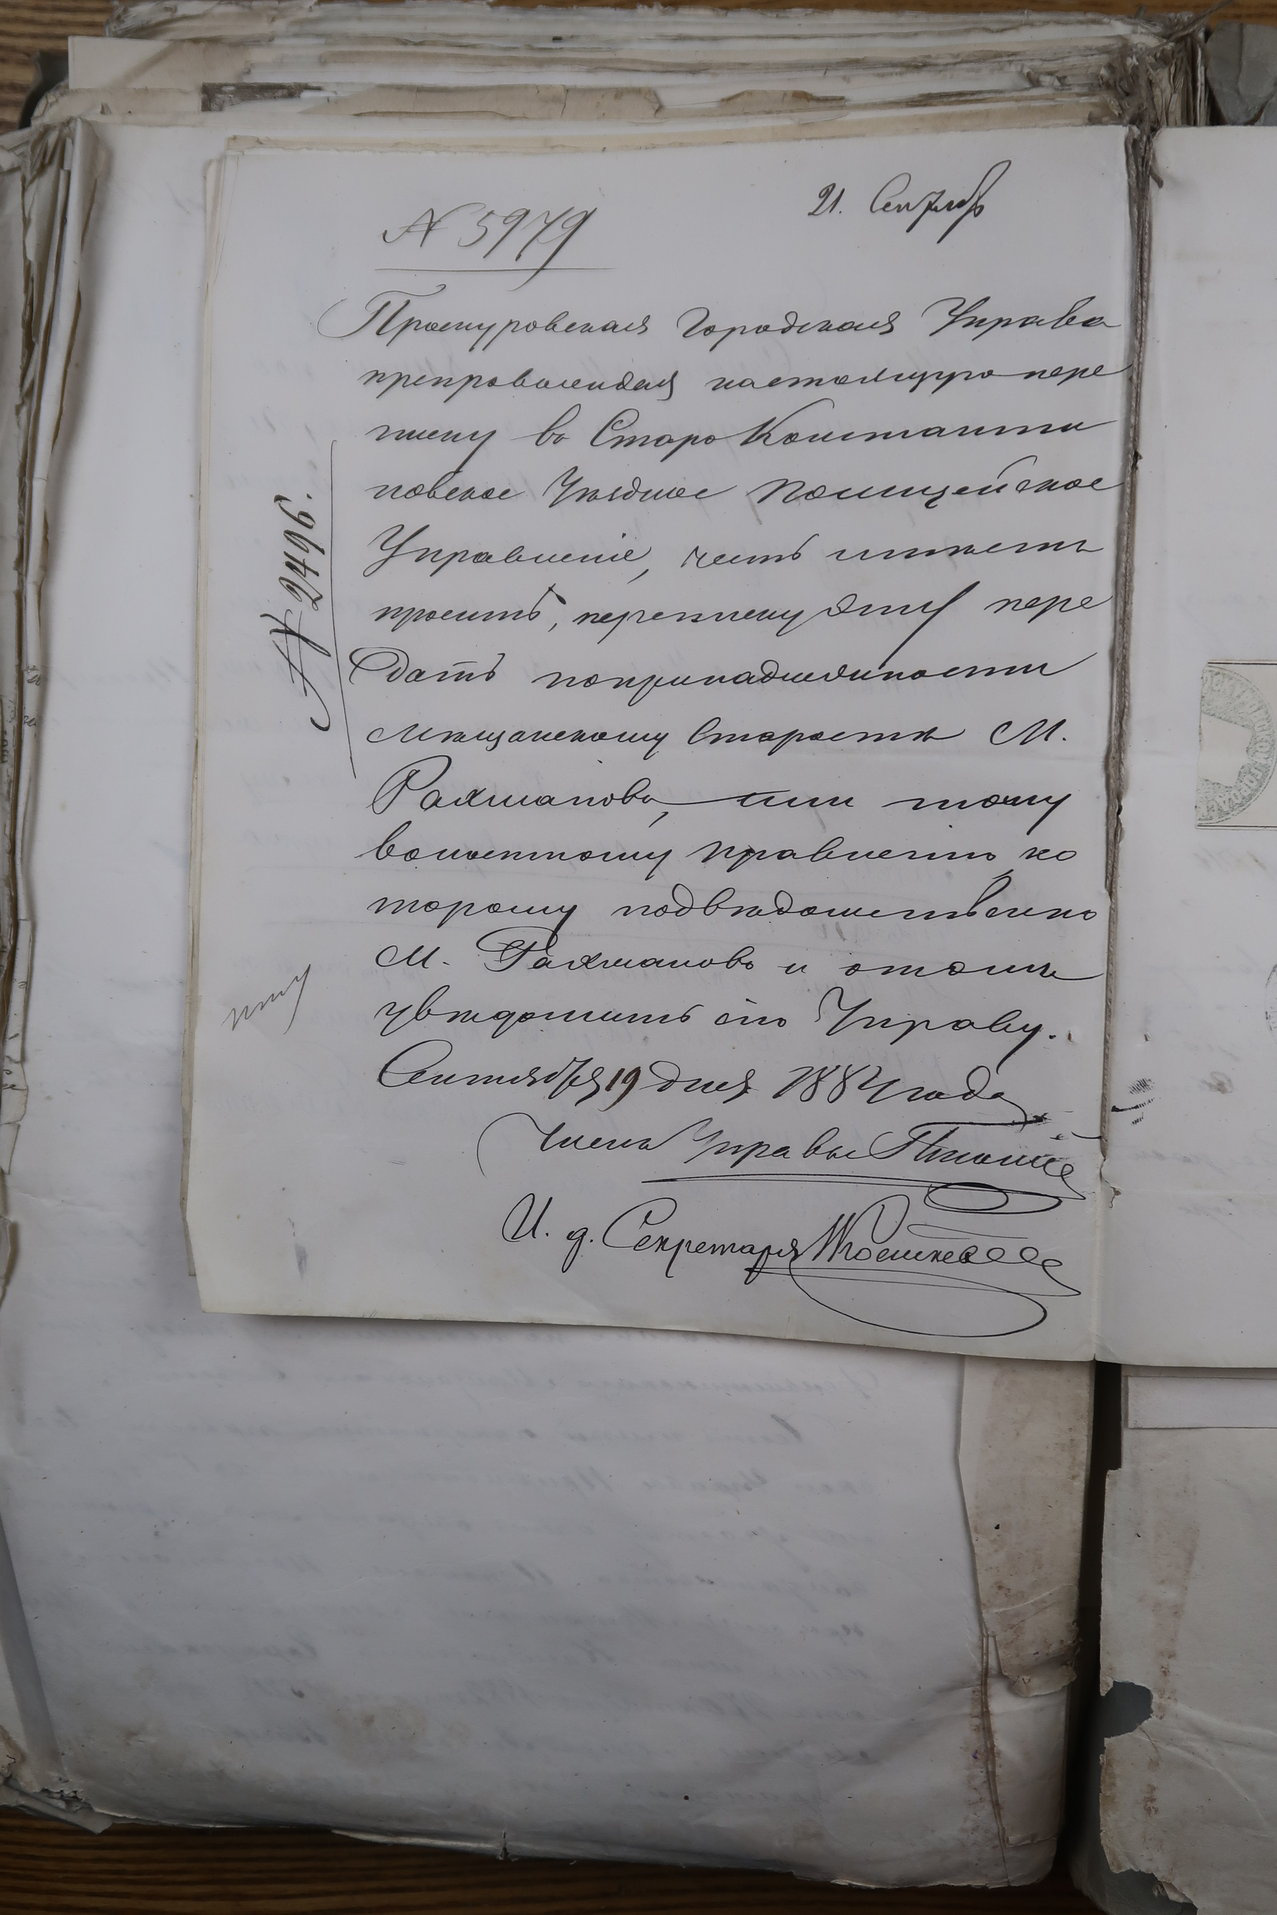 21. Сентябр
№ 5979
Проскуровская Городская Управа
препровождая настоящую пере
писку въ Старо Константи
новское Уѣздное Полицейское
Управленіе, честь имѣетъ
просить, переписку эту пере
дать попринадлежности
Мѣщанскому Старостѣ М.
Рахманова, или тому
волостному правленію, ко
торому подвѣдомственно
М. Рахманово и отомъ
увѣдомить сію Управу.
Сентября 19 дня 1884 года
Членъ Управы
И. д. Секретаря
№ 2496.